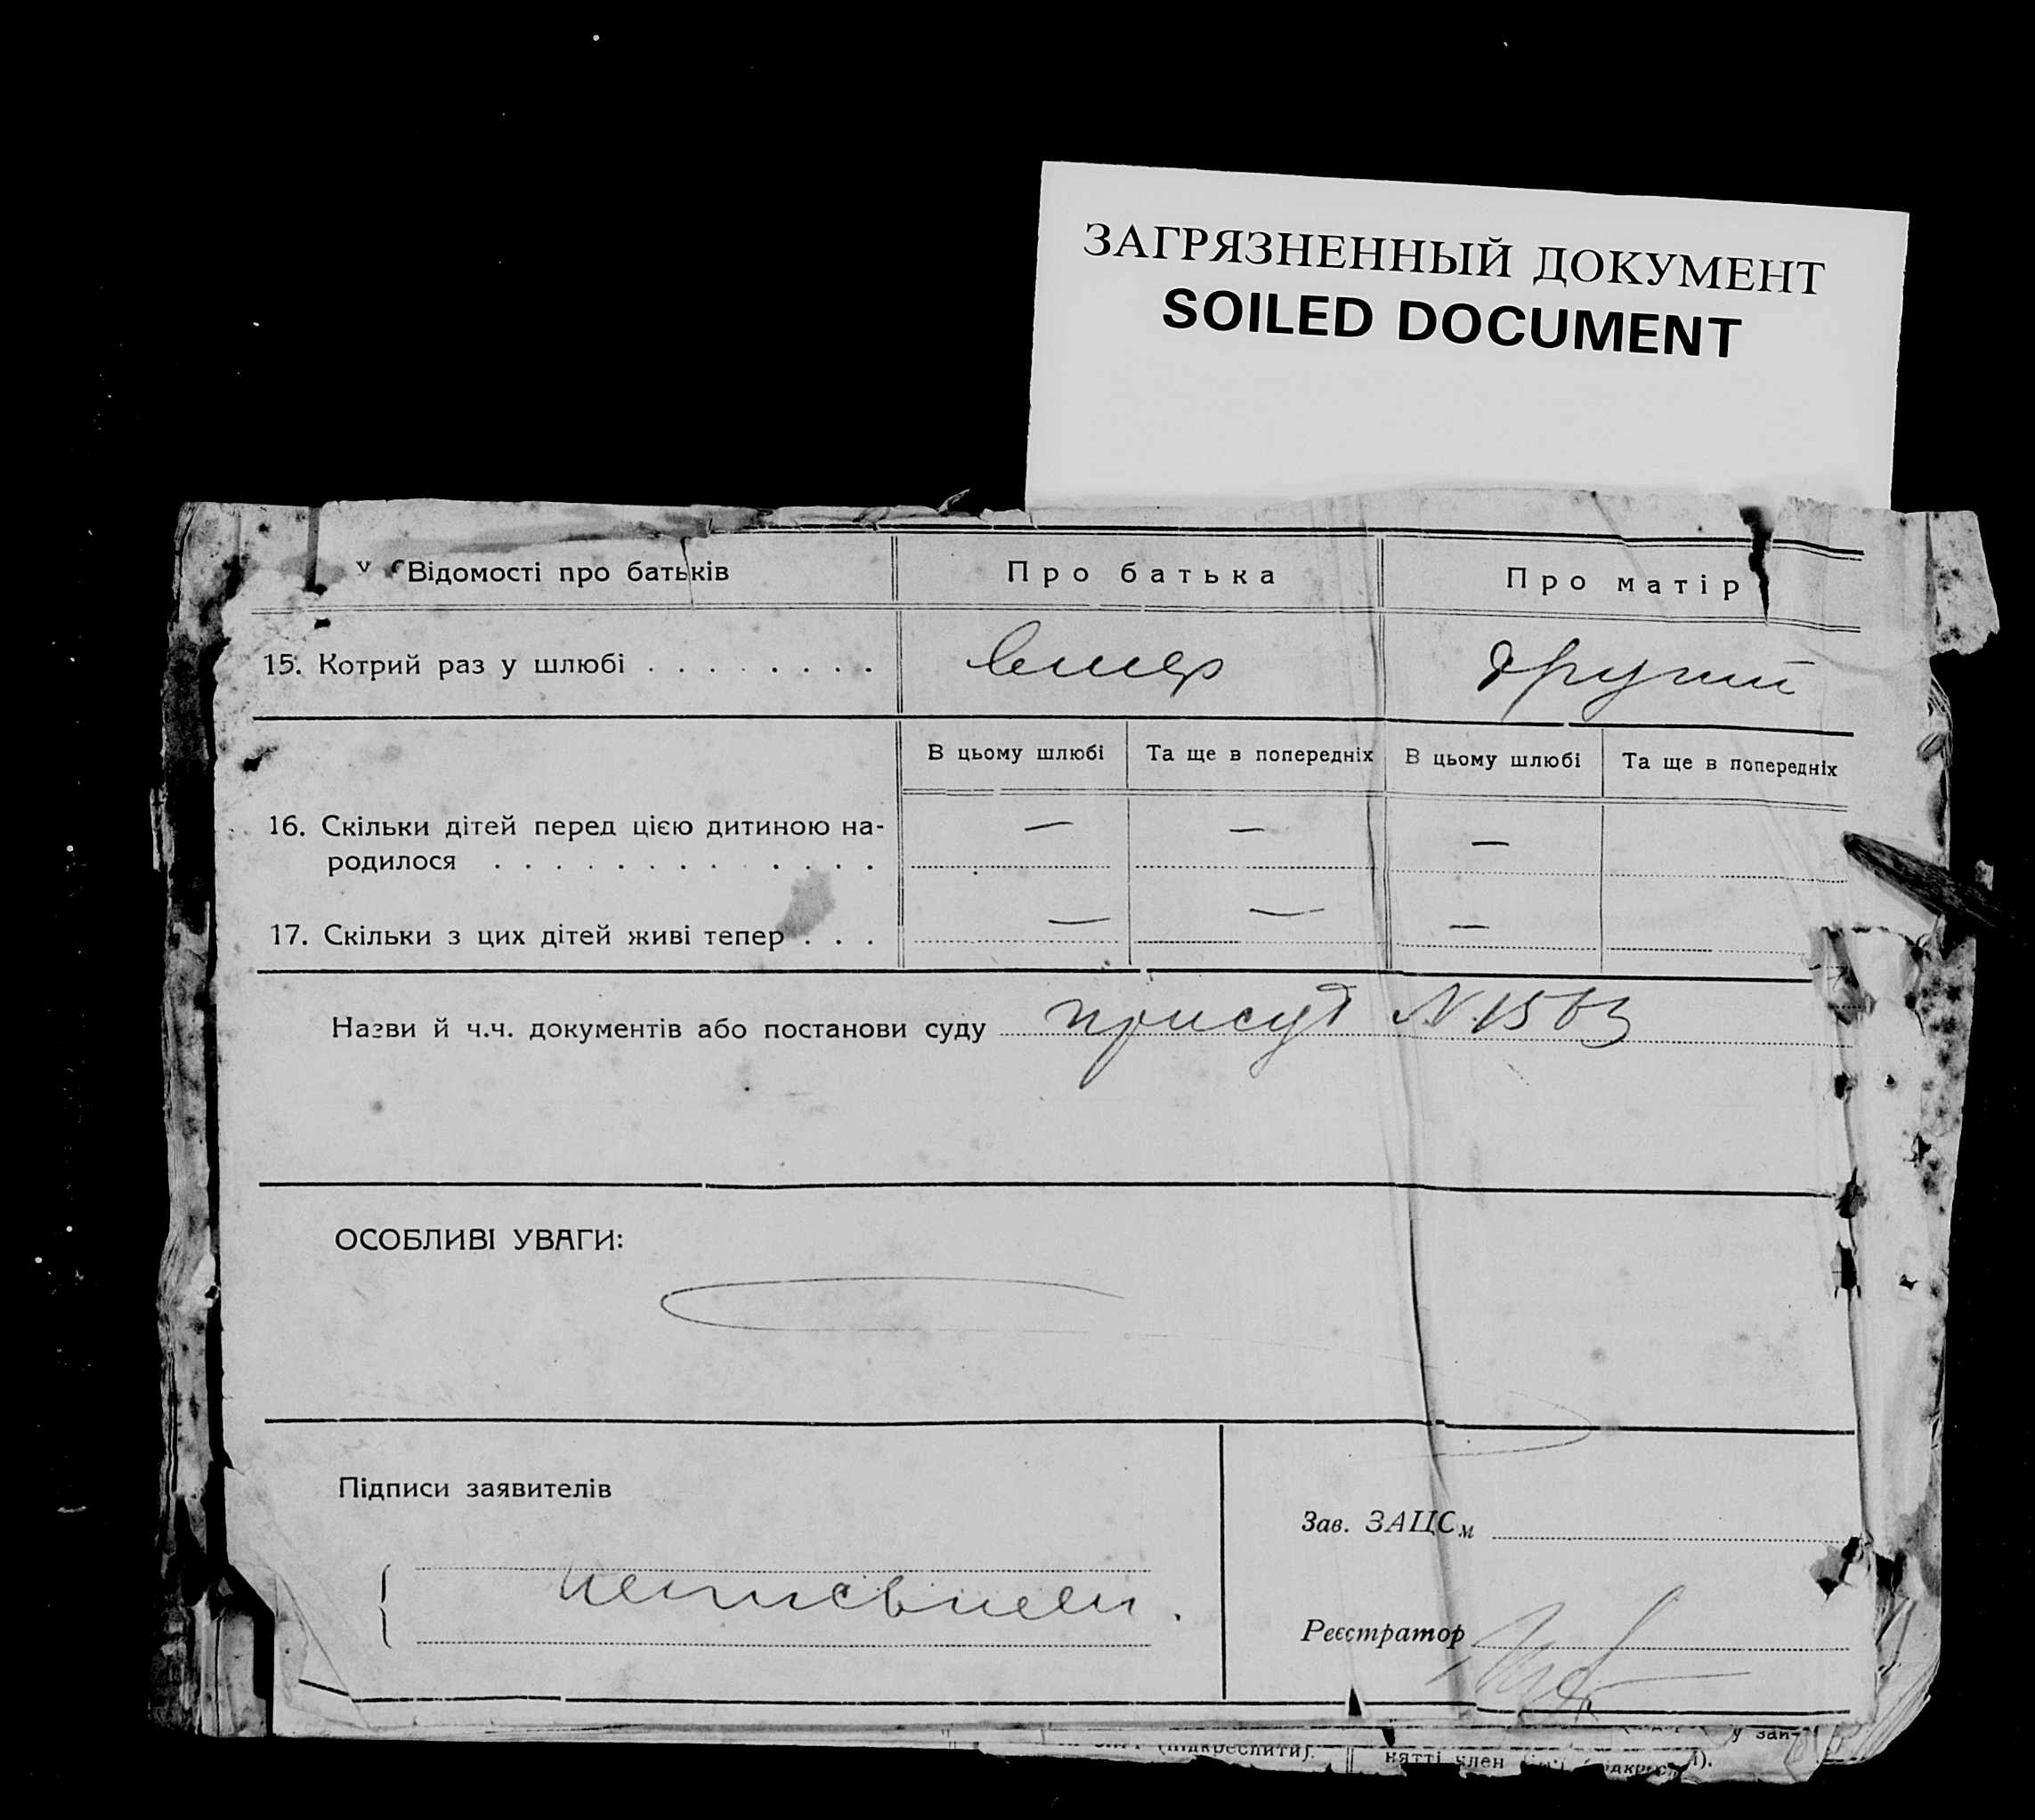 ЗАГРЯЗНЕННЫЙ ДОКУМЕНТ
SOILED DOCUMENT
Відомості про батьків
Про батька
Про матір
15. Котрий раз у шлюбі . . . . . . . .
вмер
другий
В цьому шлюбі
Та ще в попередніх
В цьому шлюбі
Та ще в попередніх
16. Скільки дітей перед цією дитиною на-
— — —
родилося . . . . . . . . . . . .
17. Скільки з цих дітей живі тепер . . .
— — —
Назви й ч.ч. документів або постанови суду
присуд N
ОСОБЛИВІ УВАГИ:
Підписи заявителів
Зав. ЗАЦСм
Реєстратор
(підкреслити).
у зап-
нятті член